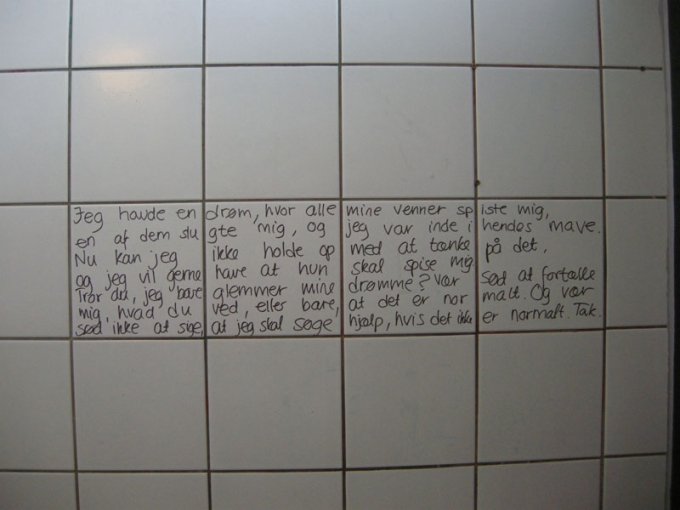 Jeg havde en drøm, hvor alle mine venner spiste mig,
en af dem slugte mig, og jeg var inde i hendes mave.
Nu kan jeg ikke holde op med at tænke på det,
og jeg vil gerne have at hun skal spise mig
Tror du, jeg bare glemmer mine drømme? Vær sød at fortælle
mig, hvad du ved, eller bare, at det er normalt. Og vær
sød ikke at sige, at jeg skal søge hjælp, hvis det ikke er normalt. Tak.